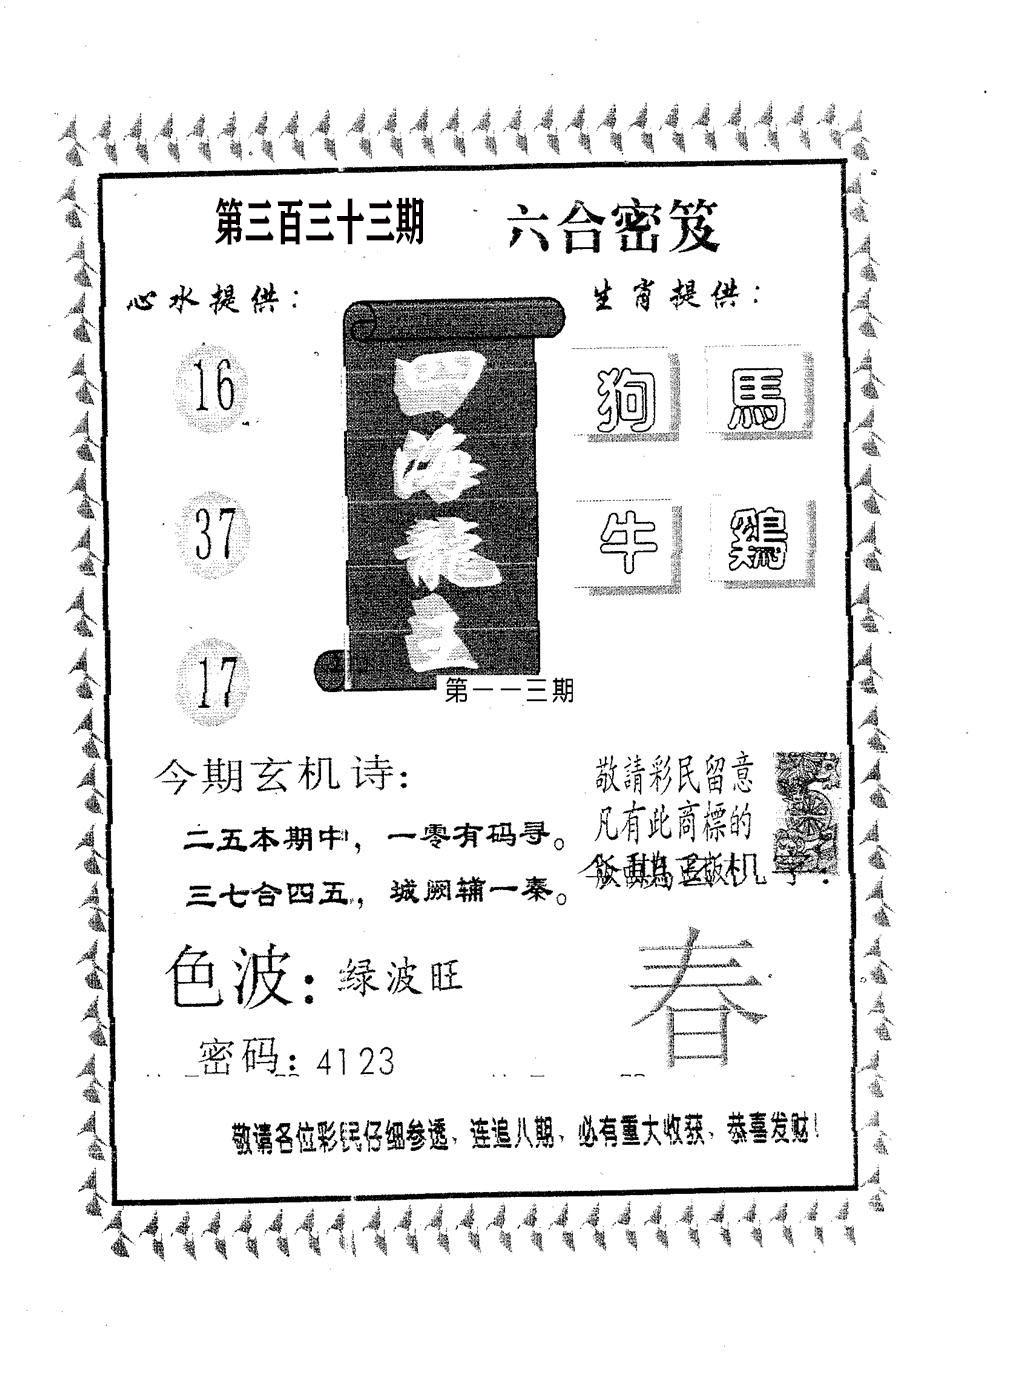 第三百三十三期
六合密笈
心水提供：
生肖提供：
16
37
17
四海龍王
狗 馬
牛 鷄
第一一三期
今期玄机诗：
二五本期中，一零有码寻。
三七合四五，城阙辅一秦。
敬請彩民留意
凡有此商標的
色波：绿波旺
密码：4123
春
敬请各位彩民仔细参透、连追八期、必有重大收获、恭喜发财！